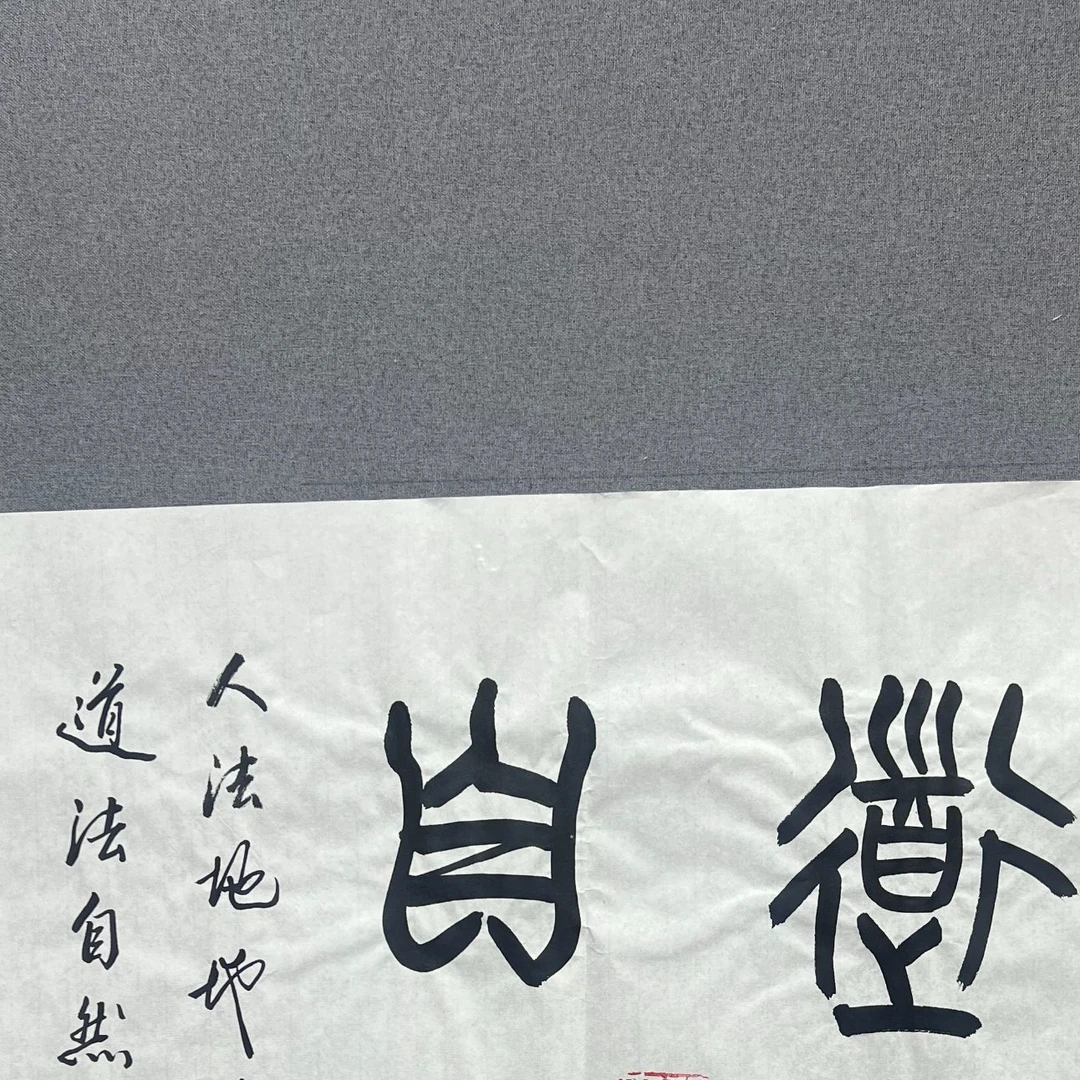 道
自
人法地地
道法自然